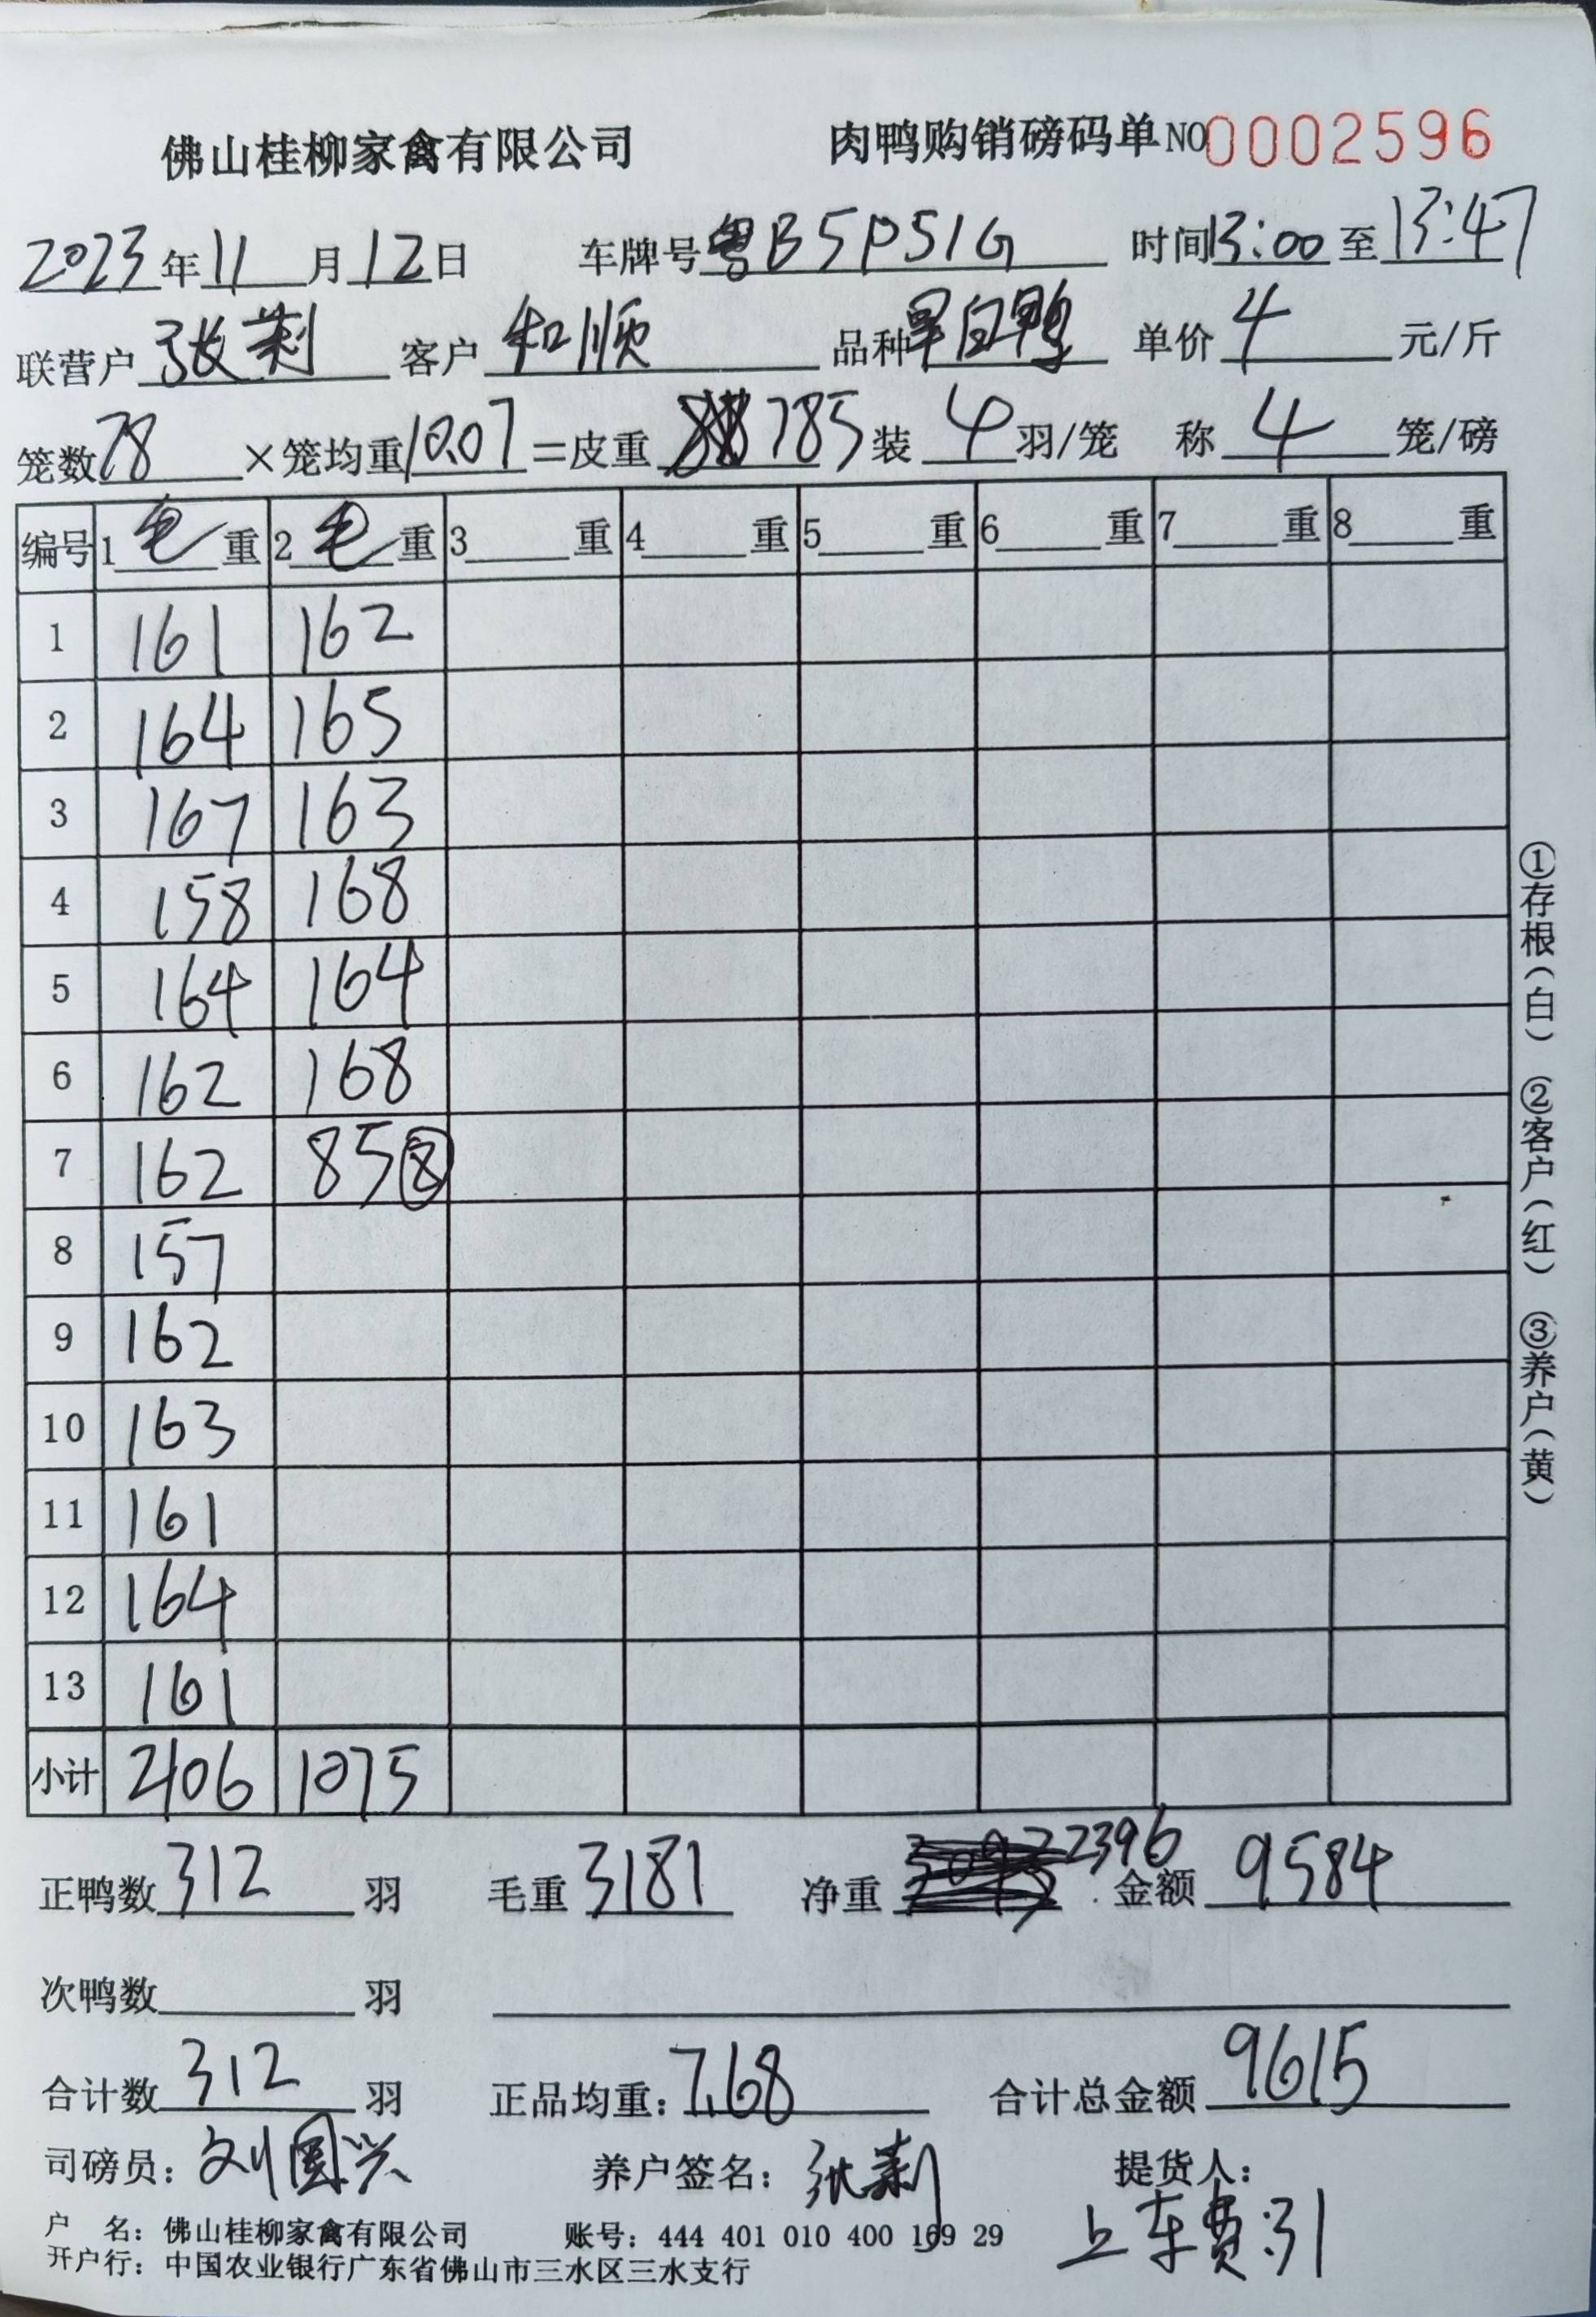 佛山桂柳家禽有限公司 肉鸭购销磅码单NO0002596
2023年11月12日 车牌号粤B5P51G 时间13:00至13:47
联营户 张莉 客户 和顺 品种旱白鸭 单价 4 元/斤
笼数78×笼均重10.07=皮重 785装 4 羽/笼 称 4 笼/磅
编号 1毛重 2毛重 3重 4重 5重 6重 7重 8重
1 161 162
2 164 165
3 167 163
4 158 168
5 164 164
6 162 168
7 162 85⑧
8 157
9 162
10 163
11 161
12 164
13 161
小计 2106 1075
正鸭数312羽 毛重3181 净重2396 金额9584
次鸭数羽
合计数312羽 正品均重:7.68 合计总金额9615
司磅员:刘国兴 养户签名:张莉 提货人:
上车费:31
户 名:佛山桂柳家禽有限公司 账号:444 401 010 400 169 29
开户行:中国农业银行广东省佛山市三水区三水支行
①存根(白) ②客户(红) ③养户(黄)